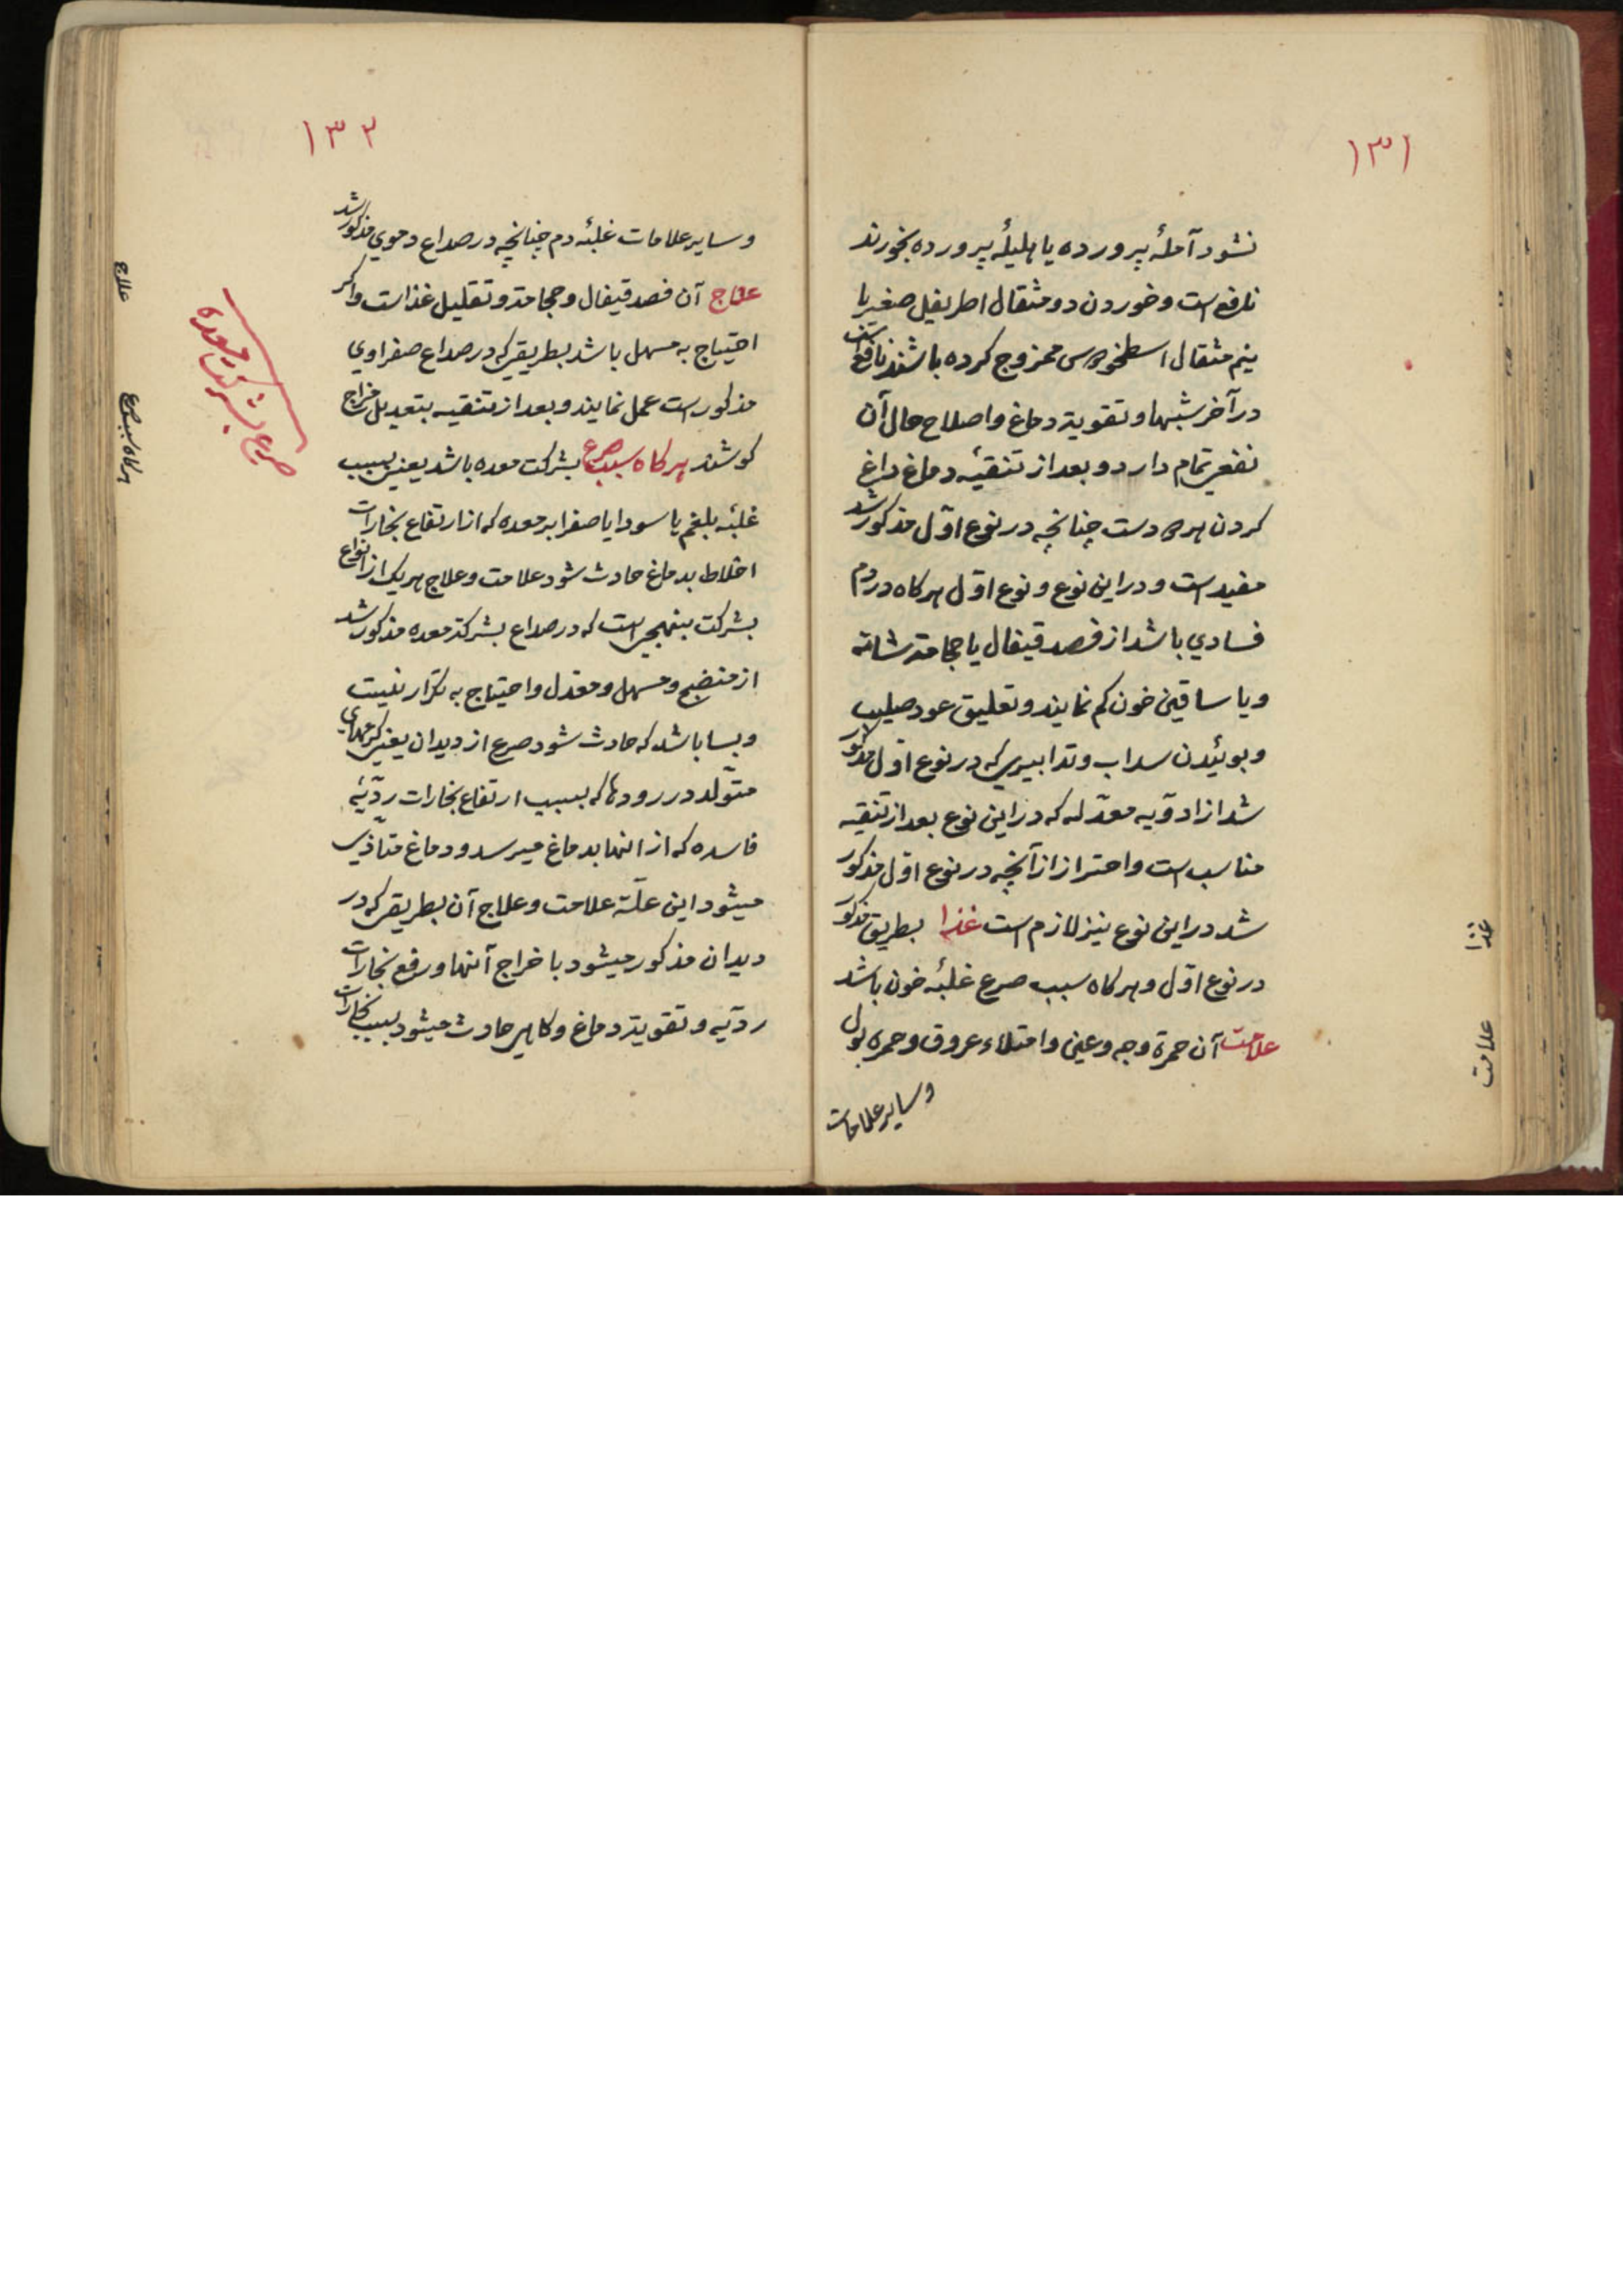 ۱۳۱
نشود آملهٔ پرورده یا هلیلهٔ پرورده بخورند
نافع است و خوردن دو مثقال اطریفل صغیر با
نیم مثقال اسطخودوس ممزوج کرده باشند نافع است
در آخر شبها و تقویة دماغ و اصلاح حال آن
نفعی تمام دارد و بعد از تنقیهٔ دماغ داغ
کردن هر دو دست چنانچه در نوع اوّل مذکور شد
مفید است و در این نوع و نوع اوّل هرکاه در دم
فسادی باشد از فصد قیفال یا حجامة شانه
و یا ساقین خون کم نمایند و تعلیق عود صلیب
و بوئیدن سداب و تدابیری که در نوع اوّل مذکور
شد از ادویه معدّله که در این نوع بعد از تنقیه
مناسب است و احتراز از آنچه در نوع اوّل مذکور
شد در این نوع نیز لازم است غذا بطریق مذکور
در نوع اوّل و هرکاه سبب صرع غلبهٔ خون باشد
علامت آن حمرة وجه و عین و امتلاء عروق و حمره بول
و سایر علامات
غذا
علامت
۱۳۲
و سایر علامات غلبهٔ دم چنانچه در صداع دموی مذکور شد
علاج آن فصد قیفال و حجامة و تقلیل غذاست و اکر
احتیاج به مسهل باشد بطریقی که در صداع صفراوی
مذکور است عمل نمایند و بعد از تنقیه بتعدیل مزاج
کوشند هرکاه سبب صرع بشرکت معده باشد یعنی بسبب
غلبهٔ بلغم یا سودا یا صفرا بر معده که از ارتفاع بخارات
اخلاط بدماغ حادث شود علامت و علاج هر یک از انواع
بشرکت بنهجی است که در صداع بشرکة معده مذکور شد
از منضج و مسهل و معدل و احتیاج به تکرار نیست
و بسا باشد که حادث شود صرع از دیدان یعنی کرمهای
متولّد در رودها که بسبب ارتفاع بخارات ردّیهٔ
فاسده که از انها بدماغ میرسد و دماغ متاذّی
میشود این علّة علامت و علاج آن بطریقی که در
دیدان مذکور میشود با خراج آنها و رفع بخارات
ردّیه و تقویة دماغ و کاهی حادث میشود بسبب بخارات
علاج
هرکاه سبب صرع
صرع بشرکت معده